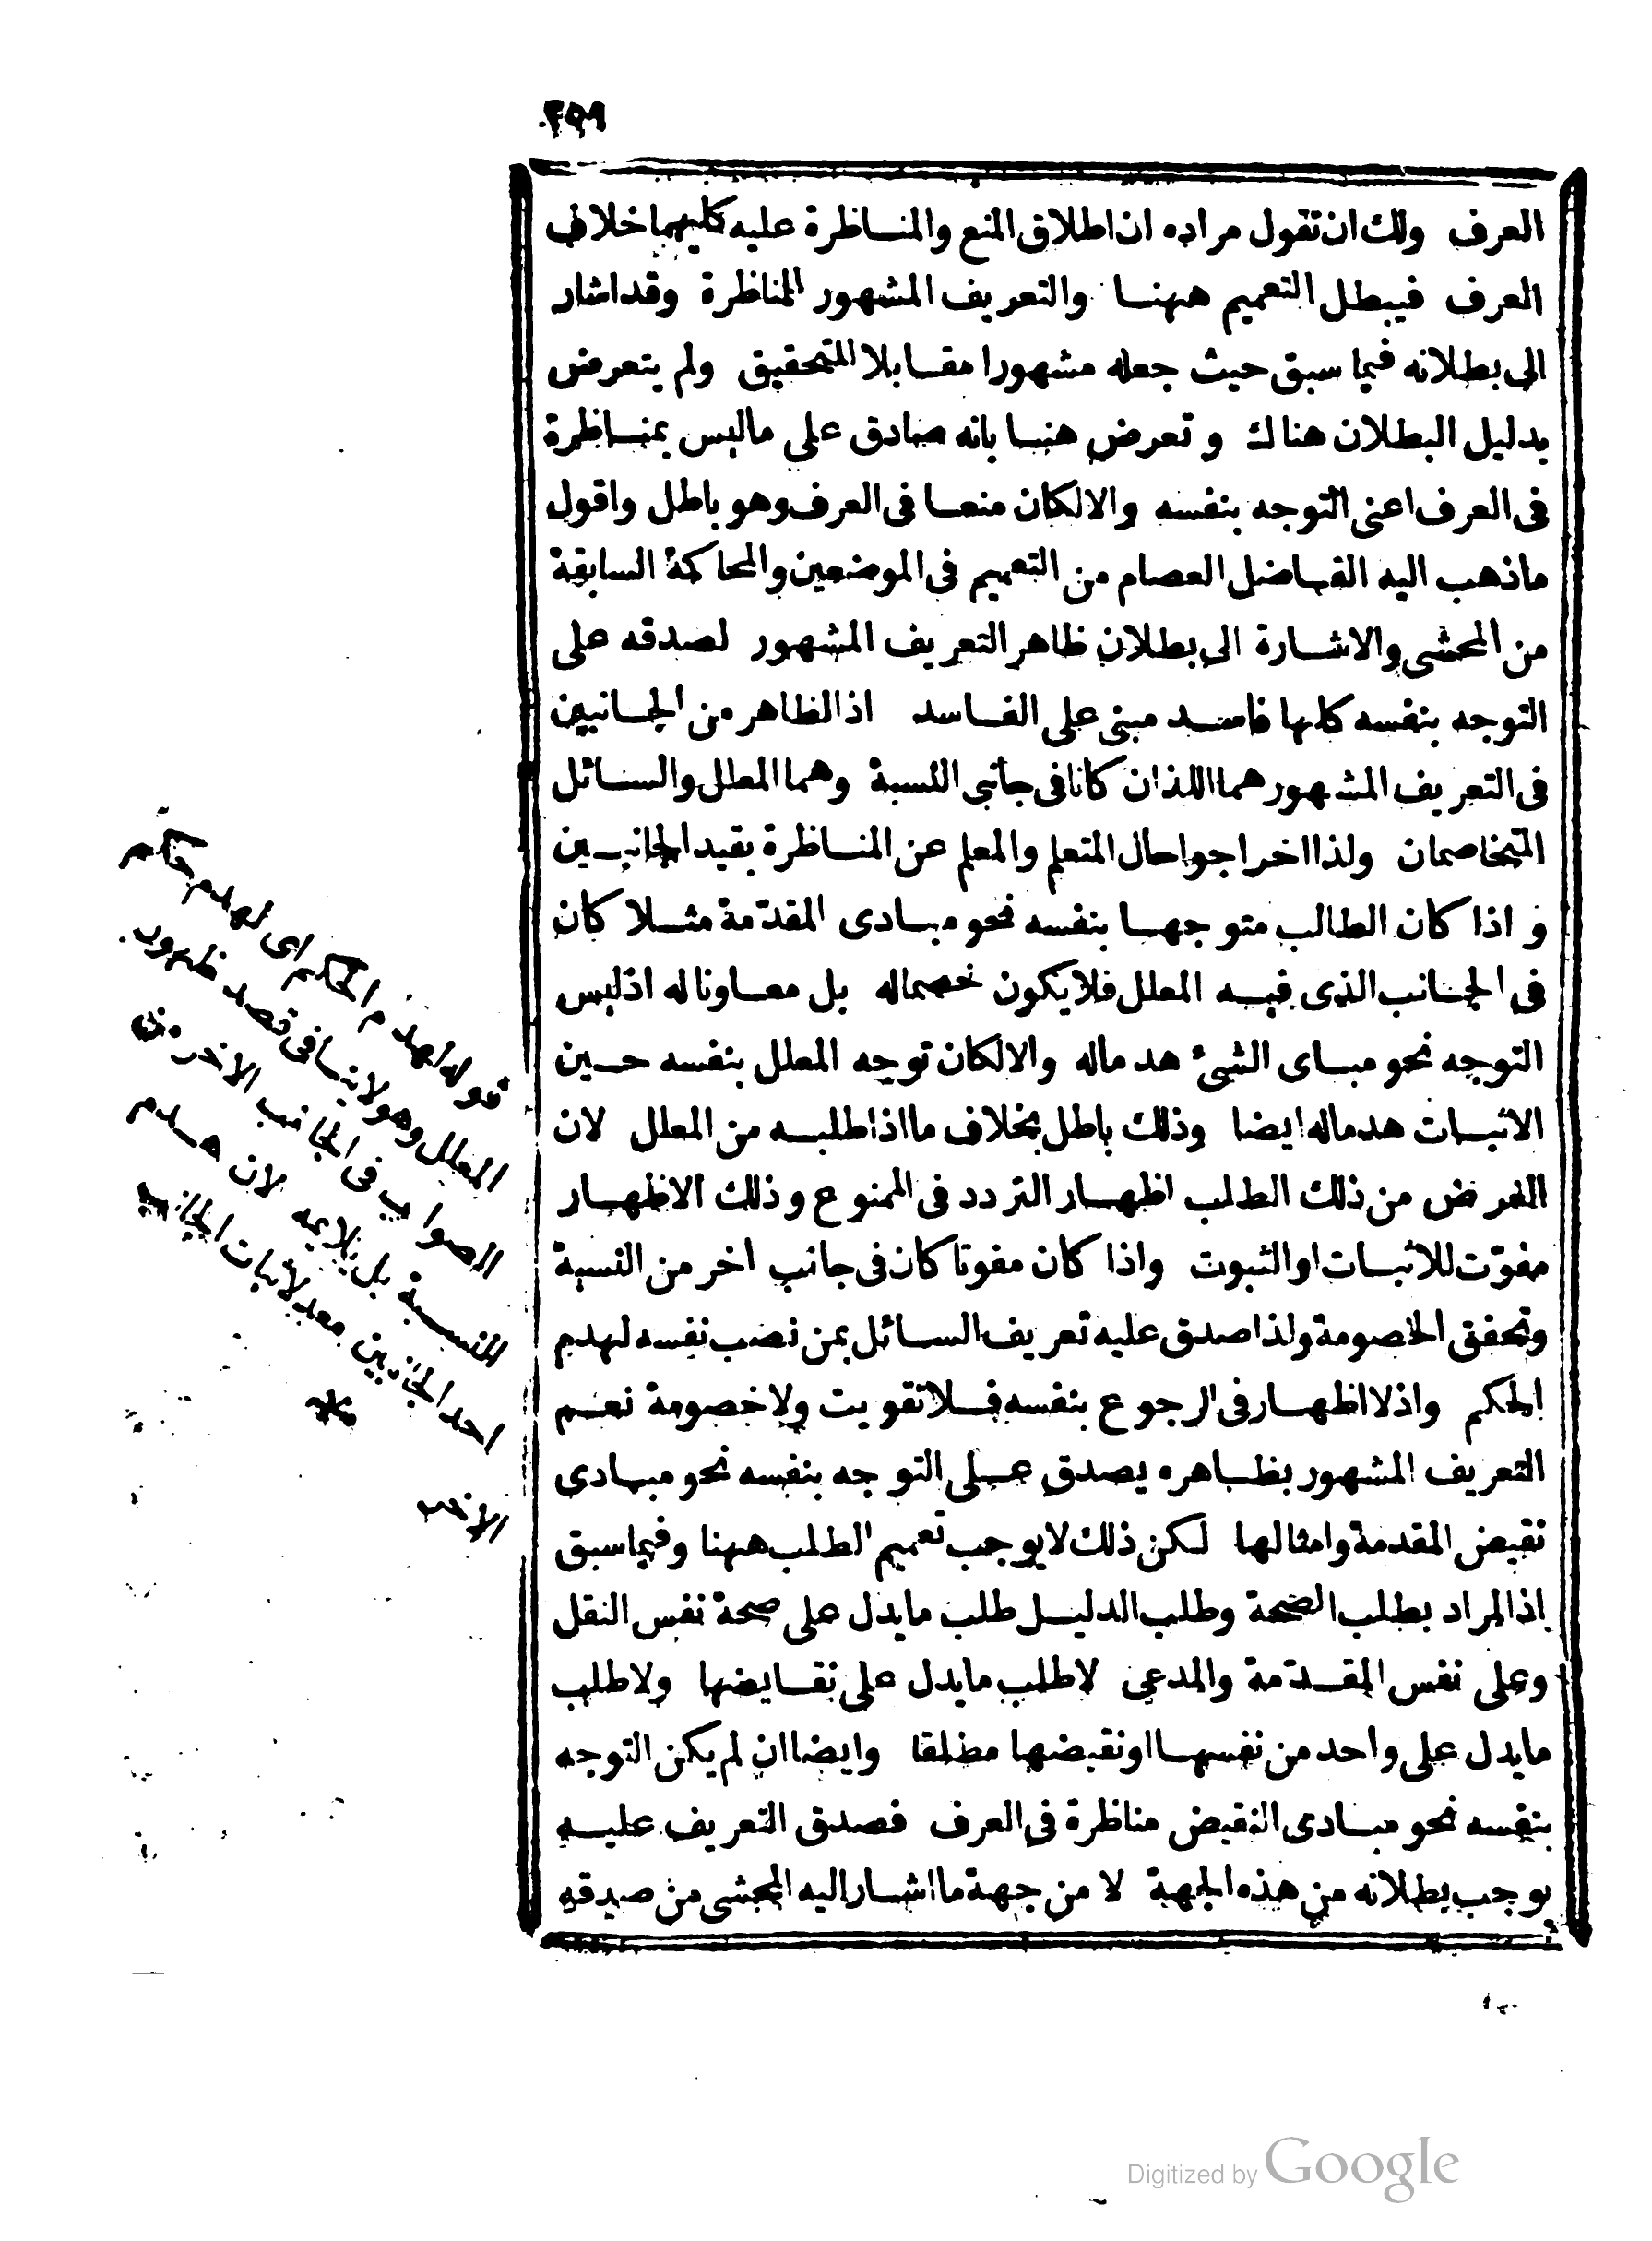 ٢٥٩
العرف ولك ان تقول مراده ان اطلاق المنع والمناظرة عليه كليهما خلاف
العرف فيبطل التعميم ههنا والتعريف المشهور للمناظرة وقد اشار
الى بطلانه فيما سبق حيث جعله مشهورا مقابلا للتحقيق ولم يتعرض
بدليل البطلان هناك وتعرض هنا بانه صادق على ماليس بمناظرة
فى العرف اعنى التوجه بنفسه والا لكان منعا فى العرف وهو باطل واقول
ماذهب اليه الفاضل العصام من التعميم فى الموضعين والمحاكمة السابقة
من المحشى والاشارة الى بطلان ظاهر التعريف المشهور لصدقه على
التوجه بنفسه كلها فاسد مبنى على الفاسد اذ الظاهر من الجانبين
فى التعريف المشهور هما اللذان كانا فى جانبى النسبة وهما المعلل والسائل
المتخاصمان ولذا اخرجوا حال المتعلم والمعلم عن المناظرة بقيد الجانبين
و اذا كان الطالب متوجها بنفسه نحو مبادى المقدمة مثلا كان
فى الجانب الذى فيه المعلل فلا يكون خصما له بل معاونا له اذ ليس
التوجه نحو مباى الشئ هدما له والا لكان توجه المعلل بنفسه حين
الاثبات هدما له ايضا وذلك باطل بخلاف ما اذا طلبه من المعلل لان
الغرض من ذلك الطلب اظهار التردد فى الممنوع وذلك الاظهار
مفوّت للاثبات او الثبوت واذا كان مفوتا كان فى جانب اخر من النسبة
وتحقق الخصومة ولذا صدق عليه تعريف السائل بمن نصب نفسه لهدم
الحكم واذ لا اظهار فى الرجوع بنفسه فلا تفويت ولا خصومة نعم
التعريف المشهور بظاهره يصدق على التوجه بنفسه نحو مبادى
نقيض المقدمة وامثالها لكن ذلك لا يوجب تعميم الطلب ههنا وفيما سبق
اذ المراد بطلب الصحة وطلب الدليل طلب مايدل على صحة نفس النقل
وعلى نفس المقدّمة والمدعى لا طلب مايدل على نقايضها ولا طلب
مايدل على واحد من نفسها او نقيضها مطلقا وايضا ان لم يكن التوجه
بنفسه نحو مبادى النقيض مناظرة فى العرف فصدق التعريف عليه
يوجب بطلانه من هذه الجهة لا من جهة ما اشار اليه المحشى من صدقه
قوله لهدم الحكم اى لهدم حكم
المعلل وهو لا ينافى قصد ظهور
الصواب فى الجانب الاخر من
النسبة بل يلايمه لان هدم
احد الجانبين معد لاثبات الجانب
الاخر
منه
Digitized by Google